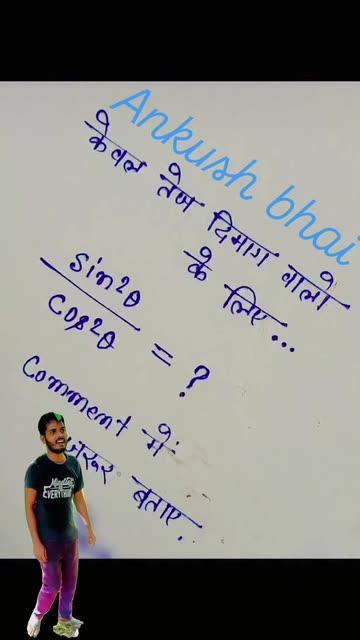 Ankush bhai
केवल तेज दिमाग वालो
के लिए...
sin2θ
cos2θ
= ?
Comment में
जरूर बताए.
EVERYTHING